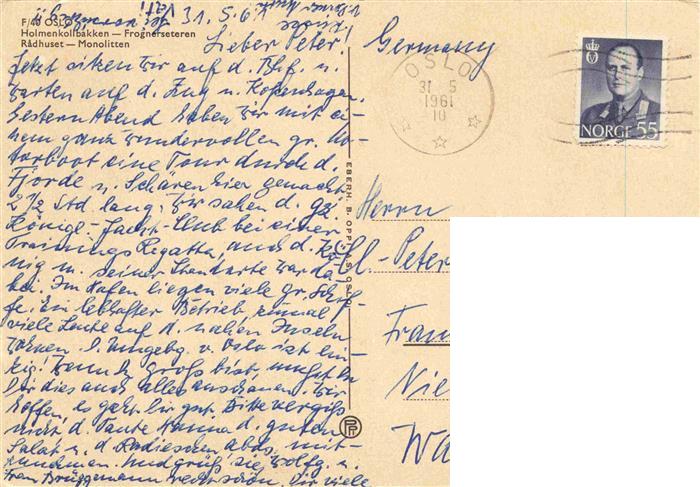 F/40 OSLO
Holmenkollbakken — Frognerseteren
Rådhuset — Monolitten
31.5.61
Lieber Peter!
Jetzt sitzen wir auf d. Bhf. u.
warten auf d. Zug n. Kopenhagen.
Gestern Abend haben wir mit ei-
nem ganz wundervollen gr. Mo-
torboot eine Tour durch d.
Fjorde u. Schären hier gemacht.
2 1/2 Std. lang. Wir sahen d. gz.
Königl. Jacht-Club bei einer
Trainings Regatta, auch d. Kö-
nig m. seiner Standarte war da-
bei. Im Hafen liegen viele gr. Schif-
fe. Ein lebhafter Betrieb, zumal
viele Leute auf d. nahen Inseln
wohnen. D. Umgebg. v. Oslo ist ein-
zig! Wenn Du groß bist, mußt Du
Dir dies auch alles anschauen. Wir
hoffen, es geht Dir gut. Bitte vergiß
nicht d. Tante Hanna d. guten
Salat u. d. Radieschen abds. mit-
zunehmen. Und grüß sie, Wolfg. u.
Frau Brüggemann recht schön. Dir viele
EBERH. B. OPPI S. OSLO
Germany
OSLO
31 5
1961
10
NORGE 55
Herrn
Peter
Fran
Nie
Wa